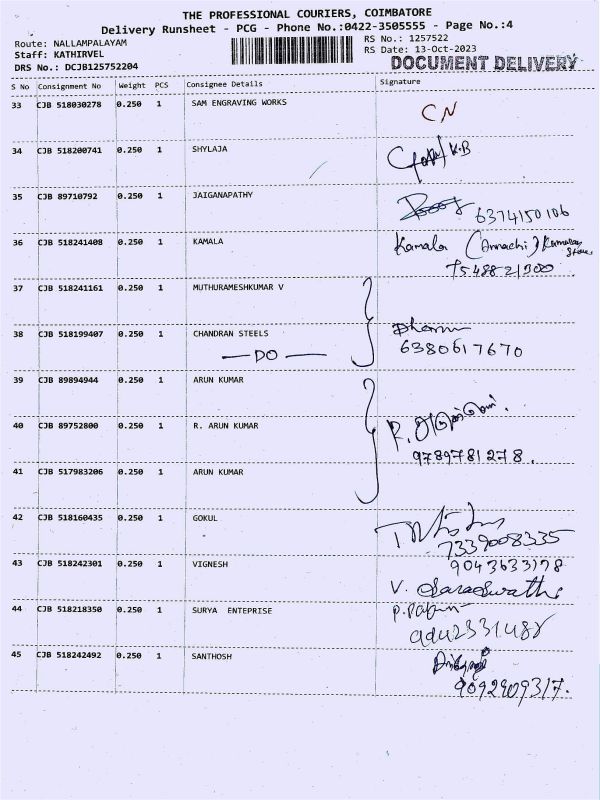 THE PROFESSIONAL COURIERS, COIMBATORE
Delivery Runsheet - PCG - Phone No.:0422-3505555 - Page No.:4
Route: NALLAMPALAYAM RS No.: 1257522
Staff: KATHIRVEL RS Date: 13-Oct-2023
DRS No.: DCJB125752204 DOCUMENT DELIVERY
S No Consignment No Weight PCS Consignee Details Signature
33 CJB 518030278 0.250 1 SAM ENGRAVING WORKS CN
34 CJB 518200741 0.250 1 SHYLAJA K.B
35 CJB 89710792 0.250 1 JAIGANAPATHY
6374150106
36 CJB 518241408 0.250 1 KAMALA Kamala (Amachi)
7548821300
37 CJB 518241161 0.250 1 MUTHURAMESHKUMAR V
38 CJB 518199407 0.250 1 CHANDRAN STEELS
— DO — 6380617670
39 CJB 89894944 0.250 1 ARUN KUMAR
40 CJB 89752800 0.250 1 R. ARUN KUMAR
9789781278.
41 CJB 517983206 0.250 1 ARUN KUMAR
42 CJB 518160435 0.250 1 GOKUL
7339008335
43 CJB 518242301 0.250 1 VIGNESH 9043633178
V. Saraswathi
44 CJB 518218350 0.250 1 SURYA ENTEPRISE
9442331488
45 CJB 518242492 0.250 1 SANTHOSH
9092909317.